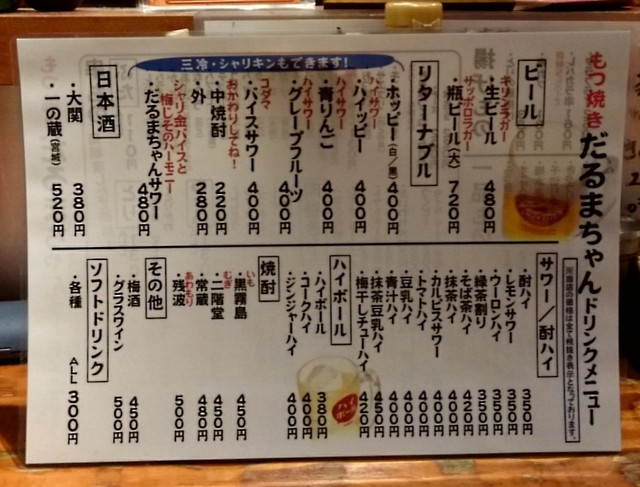 もつ焼き だるまちゃん ドリンクメニュー
ビール
キリンラガー
・生ビール 480円
サッポロラガー
・瓶ビール(大) 720円
リターナブル
・ホッピー(白/黒) 400円
ハイサワー
・ハイッピー 400円
ハイサワー
・青りんご 400円
ハイサワー
・グレープフルーツ 400円
コダマ
・バイスサワー 400円
おかわりしてね!
・中焼酎 220円
・外 280円
シャリ金バイスと
梅じそのハーモニー
・だるまちゃんサワー 480円
三冷・シャリキンもできます!
日本酒
・大関 380円
・一の蔵(宮城) 520円
サワー/酎ハイ
・酎ハイ 350円
・レモンサワー 350円
・ウーロンハイ 350円
・緑茶割り 350円
・そば茶ハイ 420円
・抹茶ハイ 400円
・カルピスサワー 400円
・トマトハイ 400円
・豆乳ハイ 400円
・青汁ハイ 400円
・抹茶豆乳ハイ 450円
・梅干しチューハイ 420円
ハイボール
・ハイボール 380円
・コークハイ 400円
・ジンジャーハイ 400円
ハイボール
焼酎
いも
・黒霧島 450円
むぎ
・二階堂 450円
・常蔵 480円
あわもり
・残波 500円
その他
・梅酒 450円
・グラスワイン 500円
ソフトドリンク
・各種 ALL 300円